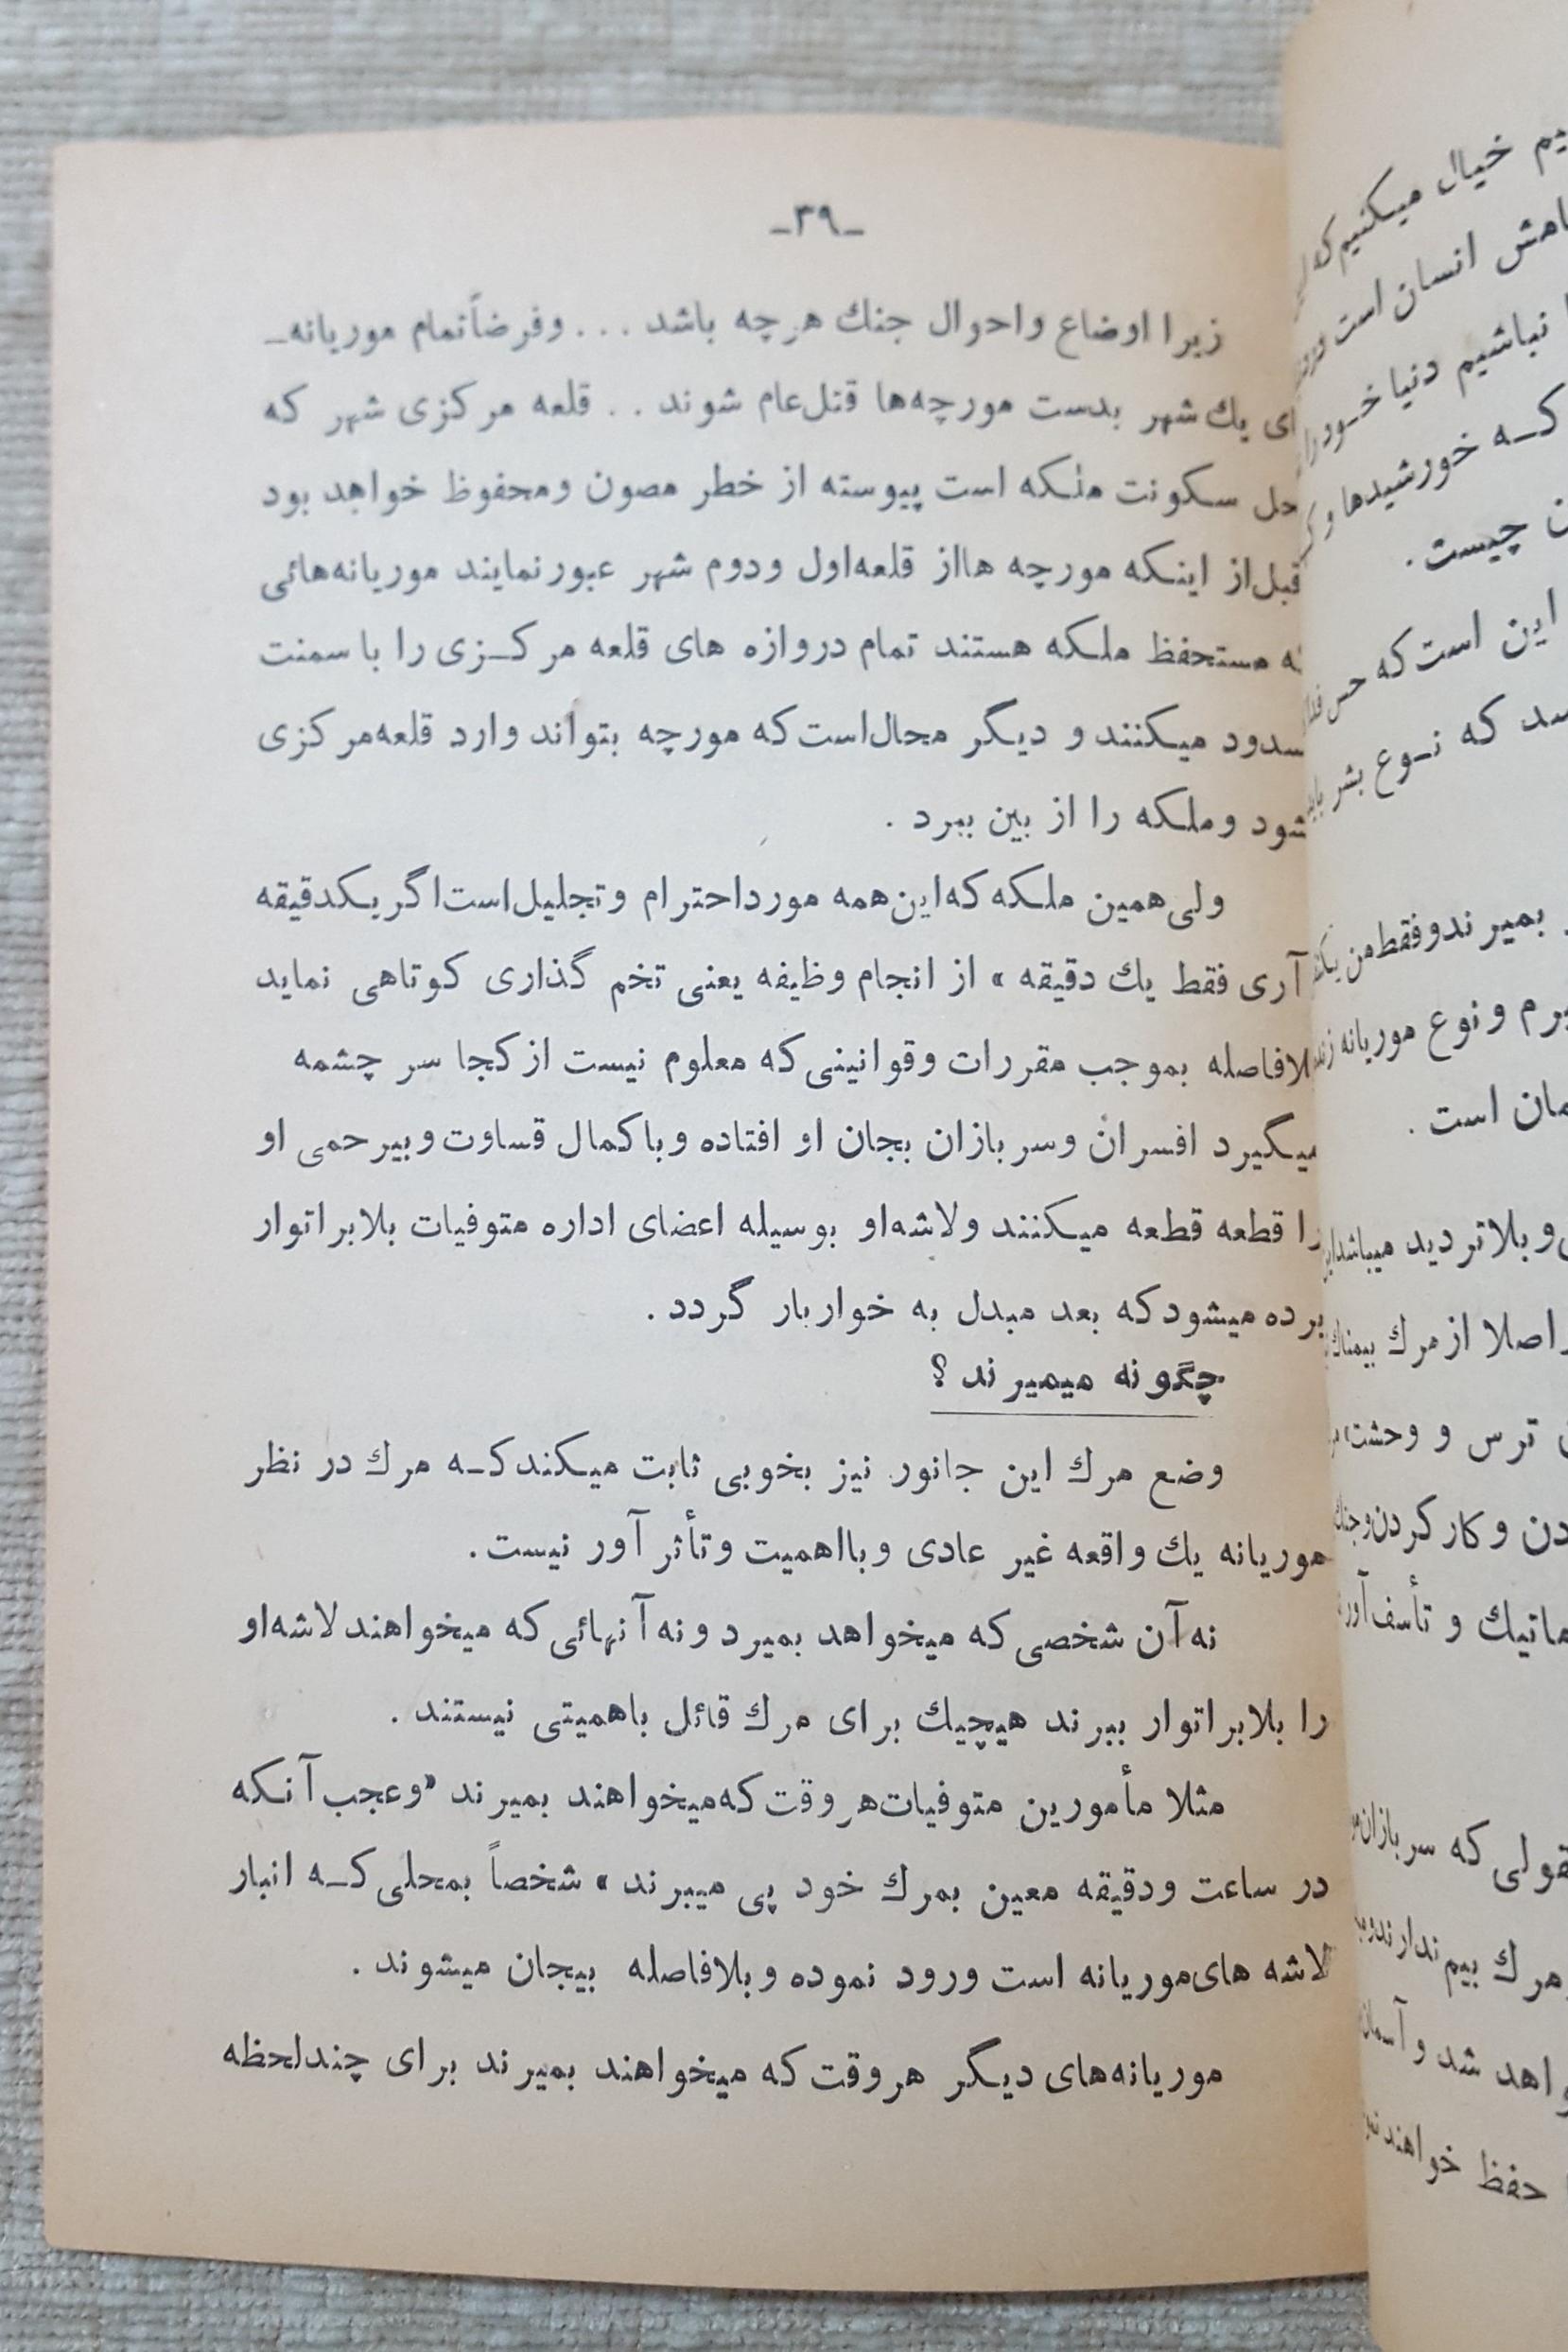 -۳۹-
زیرا اوضاع واحوال جنك هرچه باشد ... وفرضاً تمام موریانه-
ای یك شهر بدست مورچه‌ها قتل‌عام شوند .. قلعه مرکزی شهر که
سکونت ملکه است پیوسته از خطر مصون ومحفوظ خواهد بود
قبل‌از اینکه مورچه هااز قلعه‌اول ودوم شهر عبورنمایند موریانه‌هائی
مستحفظ ملکه هستند تمام دروازه های قلعه مرکزی را با سمنت
میکنند و دیگر محال‌است‌که مورچه بتواند وارد قلعه‌مرکزی
شود وملکه را از بین ببرد .
ولی‌همین ملکه که‌این‌همه مورداحترام وتجلیل‌است‌اگریکدقیقه
آری فقط یك دقیقه » از انجام وظیفه یعنی تخم گذاری کوتاهی نماید
بموجب مقررات وقوانینی‌که معلوم نیست ازکجا سر چشمه
میگیرد افسران وسربازان بجان او افتاده وباکمال قساوت‌وبیرحمی او
را قطعه قطعه میکنند ولاشه‌او بوسیله اعضای اداره متوفیات بلابراتوار
برده میشودکه بعد مبدل به خواربار گردد .
چگونه میمیرند ؟
وضع مرك این جانور نیز بخوبی ثابت میکندکه مرك در نظر
موریانه یك واقعه غیر عادی وبااهمیت وتأثر آور نیست.
نه‌آن شخصی‌که میخواهد بمیرد ونه‌آنهائی‌که میخواهند لاشه‌او
را بلابراتوار ببرند هیچیك برای مرك قائل باهمیتی نیستند .
مثلا مأمورین متوفیات‌هروقت‌که‌میخواهند بمیرند «وعجب‌آنکه
در ساعت ودقیقه معین بمرك خود پی میبرند » شخصاً بمحلی‌که انبار
لاشه های‌موریانه است ورود نموده وبلافاصله بیجان میشوند .
موریانه‌های دیگر هروقت‌که میخواهند بمیرند برای چندلحظه
خیال میکنیم‌که
انسان است
نباشیم دنیا
که خورشیدها و
چیست .
این است‌که حس
که نوع بشر
بمیرندوفقط‌من
ونوع موریانه
است .
وبلاتردید میباشد
اصلا ازمرك
ترس و وحشت
وکارکردن
و تأسف‌آور
که سربازان
مرك بیم ندارند
شد و
حفظ خواهند